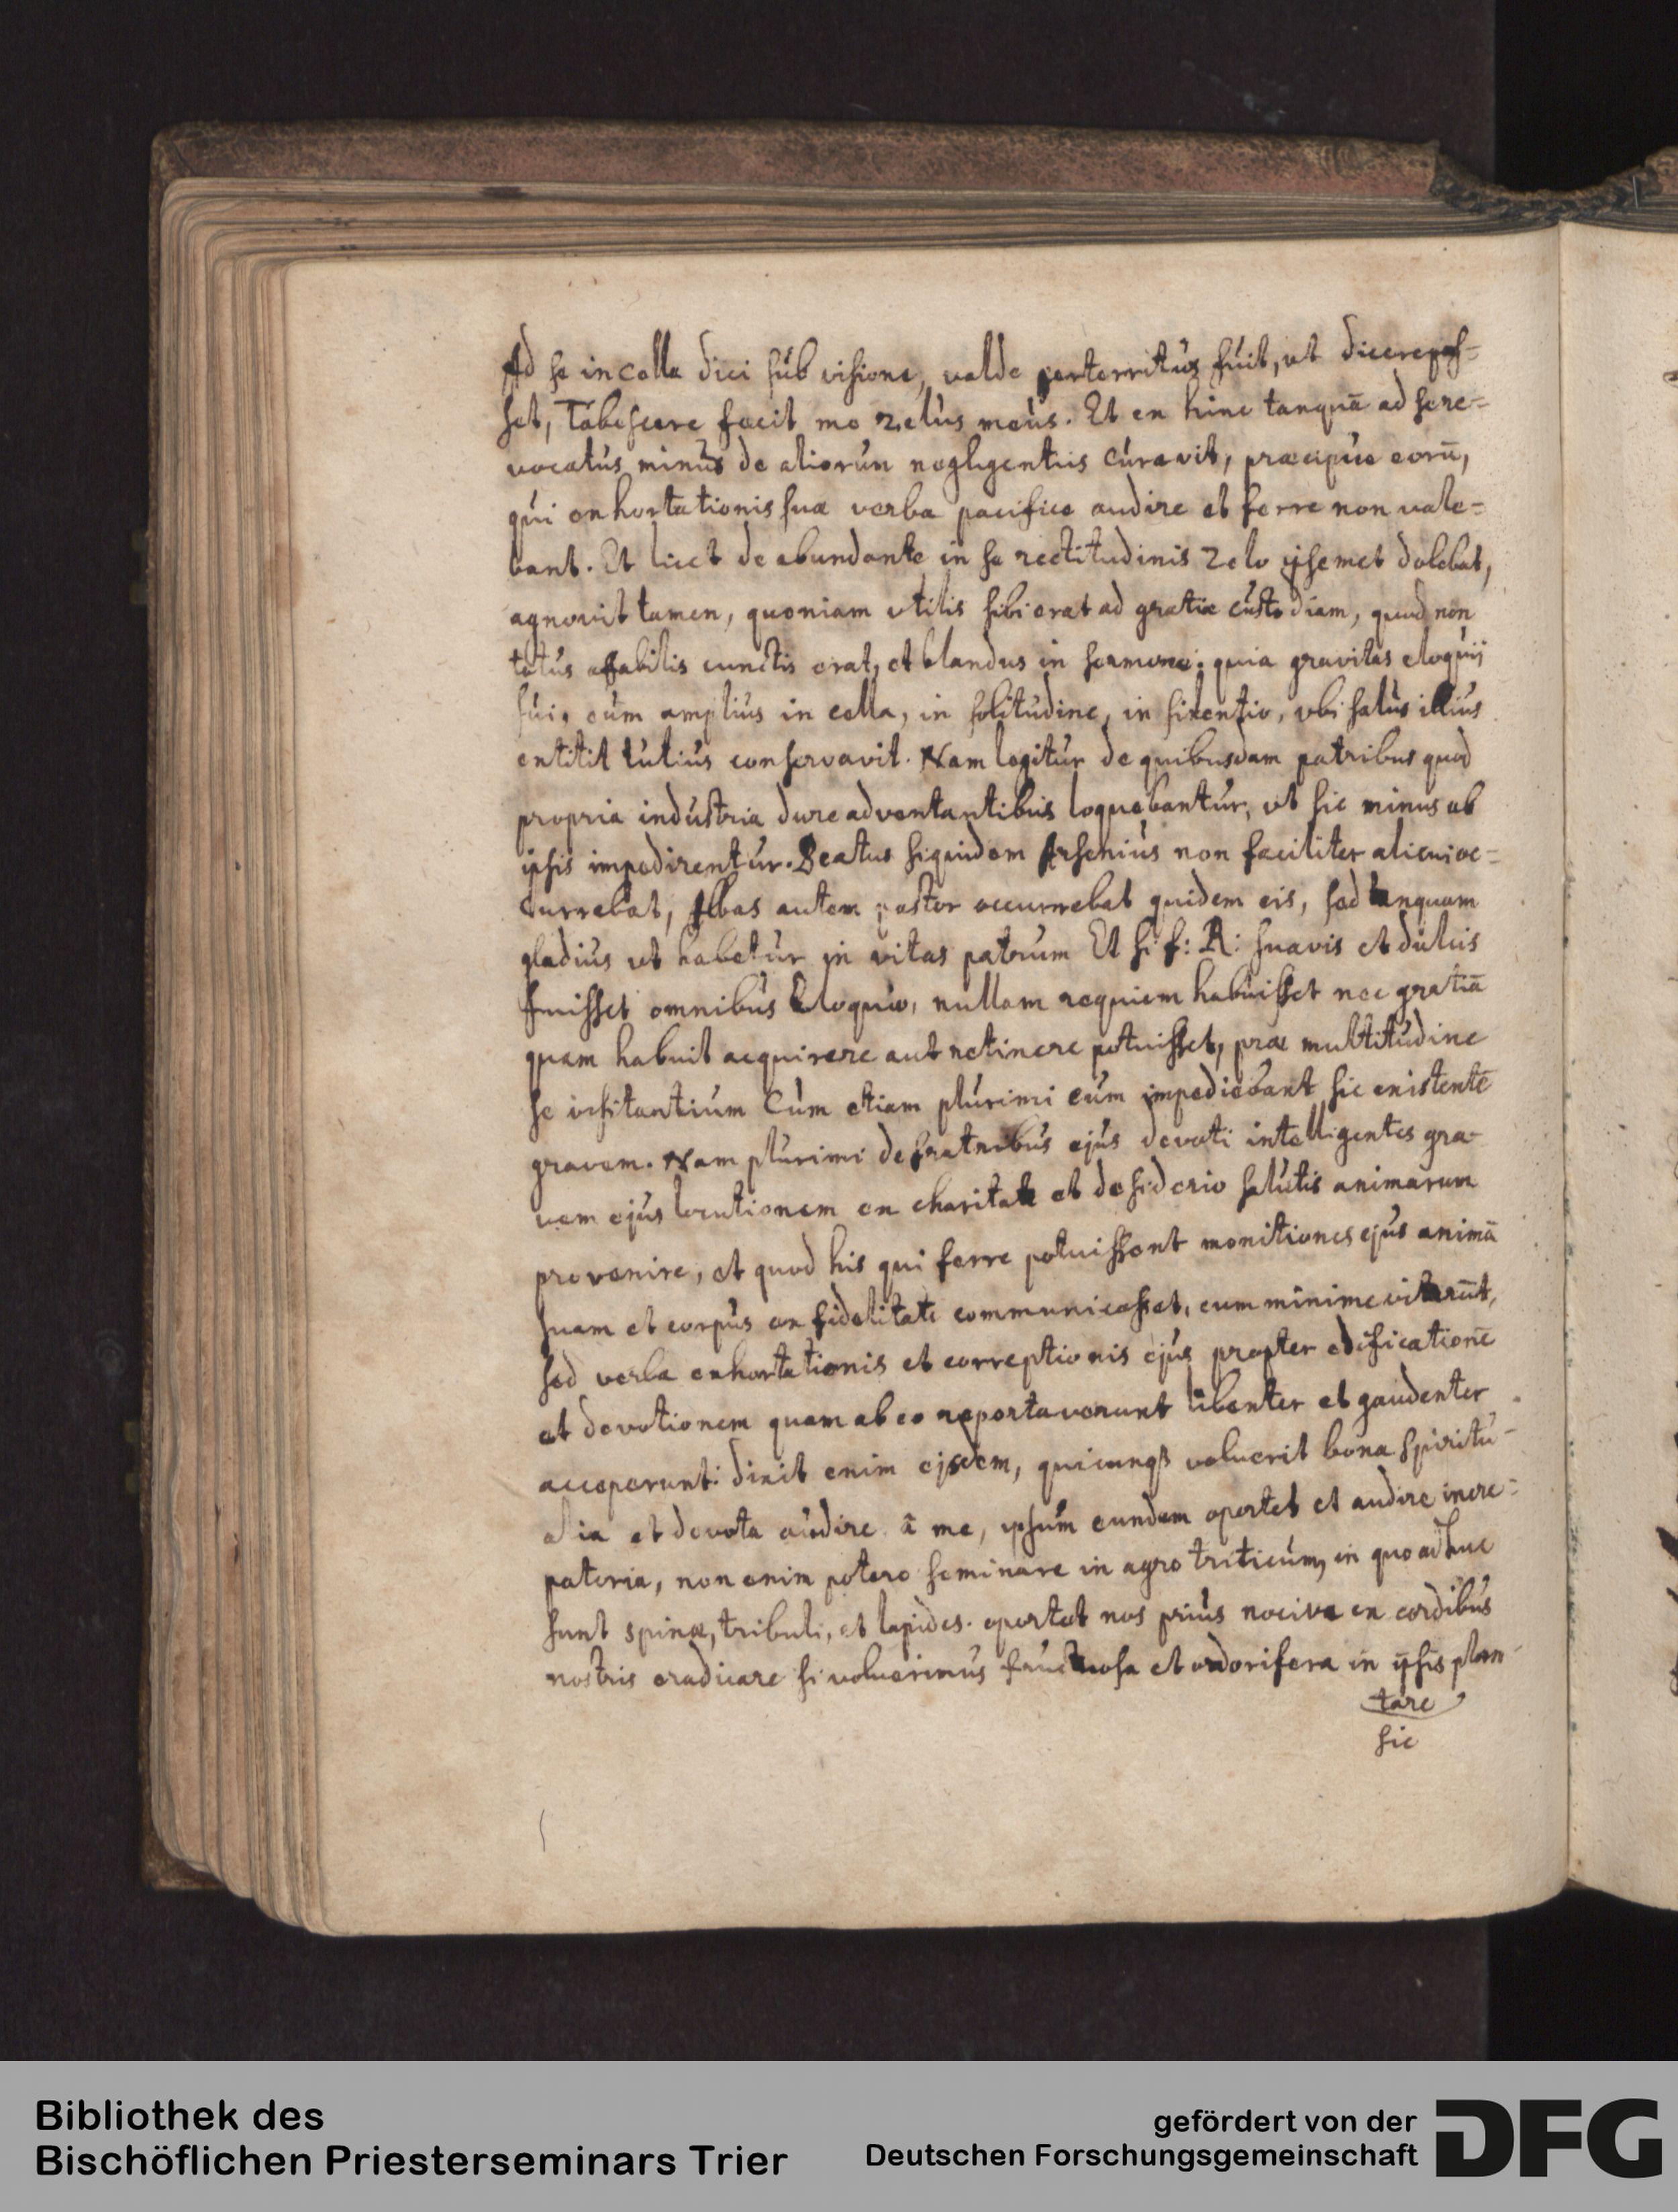 Ad se in cella dici sub visione, valde perterritus fuit, ut dicere pos=
set, Tabescere facit me zelus meus. Et ex hinc tanquā ad se re=
vocatus minus de aliorun negligentiis curavit, præcipue eorū,
qui exhortationis suæ verba pacifice audire et ferre non vale=
bant. Et licet de abundante in se rectitudinis zelo ipsemet dolebat,
agnovit tamen, quoniam utilis sibi erat ad gratiæ custodiam, quod non
totus affabilis cunctis erat, et blandus in sermone: quia gravitas eloquii
sui, eum amplius in cella, in solitudine, in silentio, ubi salus illius
extitit tutius conservavit. Nam legitur de quibusdam patribus quod
propria industria dure adventantibus loquebantur, ut sic minus ab
ipsis impedirentur. Beatus siquidem Arsenius non faciliter alicui oc=
currebat, Abas autem pastor occurrebat quidem eis, sed tanquam
gladius ut habetur in vitas patrum Et si f: R: suavis et dulcis
fuisset omnibus Eloquio, nullam requiem habuisset nec gratiā
quam habuit acquirere aut retinere potuisset, præ multitudine
se visitantium Cum etiam plurimi eum impediebant sic existentē
gravem. Nam plurimi de fratribus ejus devoti intelligentes gra-
vem ejus locutionem ex charitate et desiderio salutis animarum
provenire, et quod his qui ferre potuissent monitiones ejus animā
suam et corpus ex fidelitate communicasset, eum minime vitarūt,
sed verba exhortationis et correptionis ejus propter edificationē
et devotionem quam ab eo reportaverunt libenter et gaudenter
acceperunt: dixit enim ejsdem, quicunqȝ voluerit bona spiritu-
alia et devota audire â me, ipsum eundem oportet et audire incre=
patoria, non enim potero seminare in agro triticum, in quo adhuc
sunt spinæ, tribuli, et lapides. oportet nos prius nociva ex cordibus
nostris eradicare si voluerimus fructuosa et odorifera in ipsis plan-
tare
sic
Bibliothek des
Bischöflichen Priesterseminars Trier
gefördert von der
Deutschen Forschungsgemeinschaft
DFG